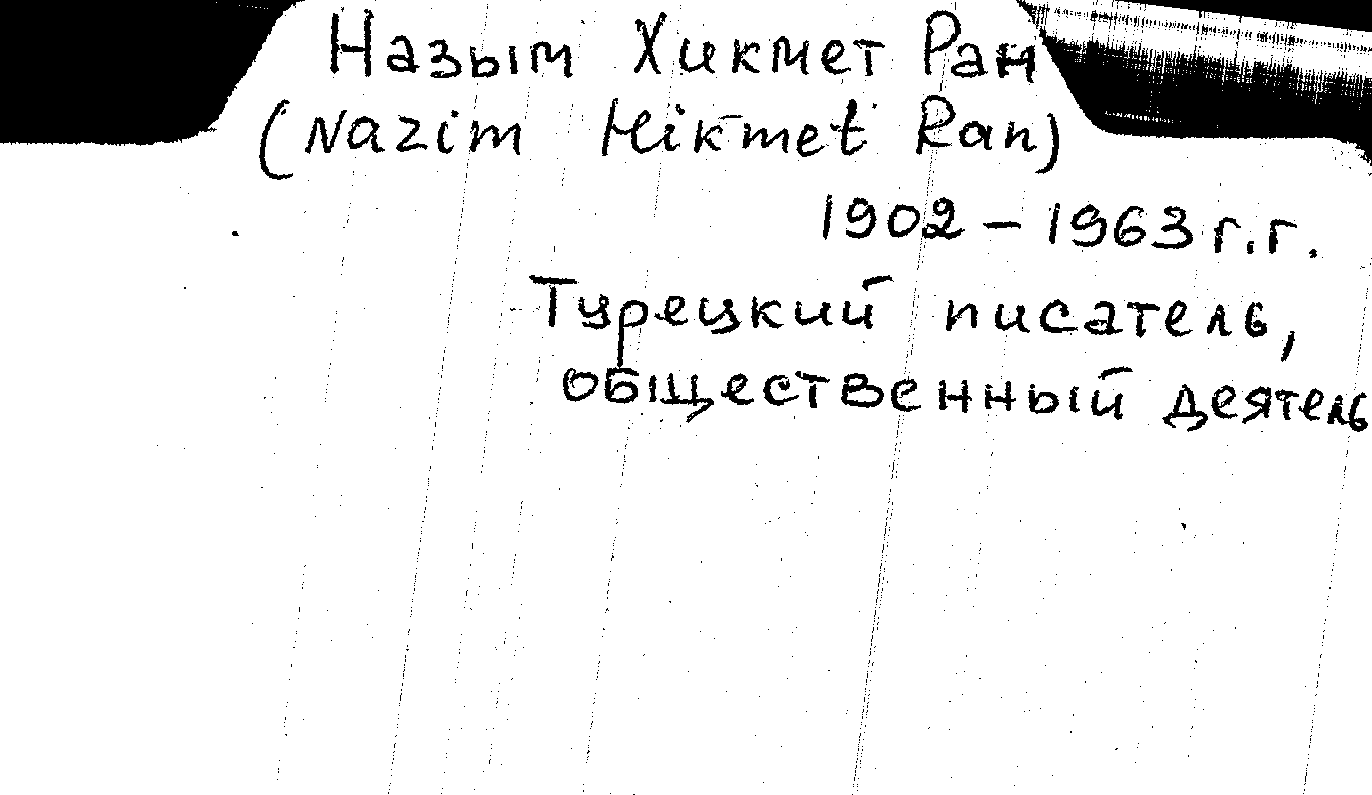 Назым Хикмет Ран
(Nazim Hikmet Ran)
1902 – 1963 г.г.
Турецкий писатель,
общественный деятель